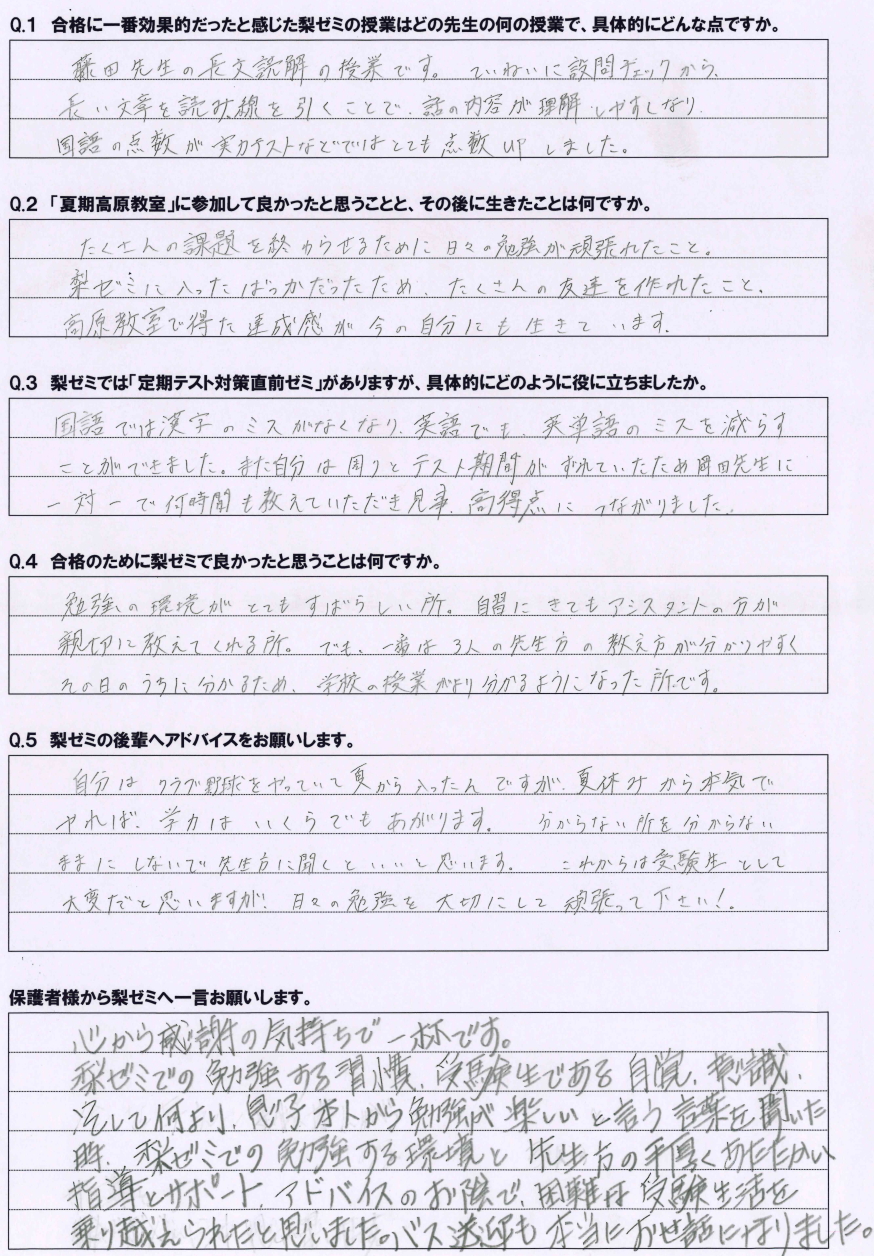 Q.1 合格に一番効果的だったと感じた梨ゼミの授業はどの先生の何の授業で、具体的にどんな点ですか。
藤田先生の長文読解の授業です。ていねいに設問チェックから、
長い文章を読み線を引くことで、話の内容が理解しやすくなり
国語の点数が実力テストなどではとても点数UPしました。
Q.2 「夏期高原教室」に参加して良かったと思うことと、その後に生きたことは何ですか。
たくさんの課題を終わらせるために日々の勉強が頑張れたこと。
梨ゼミに入ったばっかだったため、たくさんの友達を作れたこと、
高原教室で得た達成感が今の自分にも生きています。
Q.3 梨ゼミでは「定期テスト対策直前ゼミ」がありますが、具体的にどのように役に立ちましたか。
国語では漢字のミスがなくなり、英語でも、英単語のミスを減らす
ことができました。また自分は周りとテスト期間がずれていたため岡田先生に
一対一で何時間も教えていただき見事、高得点につながりました。
Q.4 合格のために梨ゼミで良かったと思うことは何ですか。
勉強の環境がとてもすばらしい所。自習にきてもアシスタントの方が
親切に教えてくれる所。でも、一番は3人の先生方の教え方が分かりやすく
その日のうちに分かるため、学校の授業がより分かるようになった所です。
Q.5 梨ゼミの後輩へアドバイスをお願いします。
自分はクラブ野球をやっていて夏から入ったんですが、夏休みから本気で
やれば、学力はいくらでもあがります。分からない所を分からない
ままにしないで先生方に聞くといいと思います。これからは受験生として
大変だと思いますが、日々の勉強を大切にして頑張って下さい!。
保護者様から梨ゼミへ一言お願いします。
心から感謝の気持ちで一杯です。
梨ゼミでの勉強する習慣、受験生である自覚、意識、
そして何より、息子本人から勉強が楽しいと言う言葉を聞いた
時、梨ゼミでの勉強する環境と先生方の手厚くあたたかい
指導とサポート、アドバイスのお陰で、困難な受験生活を
乗り越えられたと思いました。バス送迎も本当にお世話になりました。